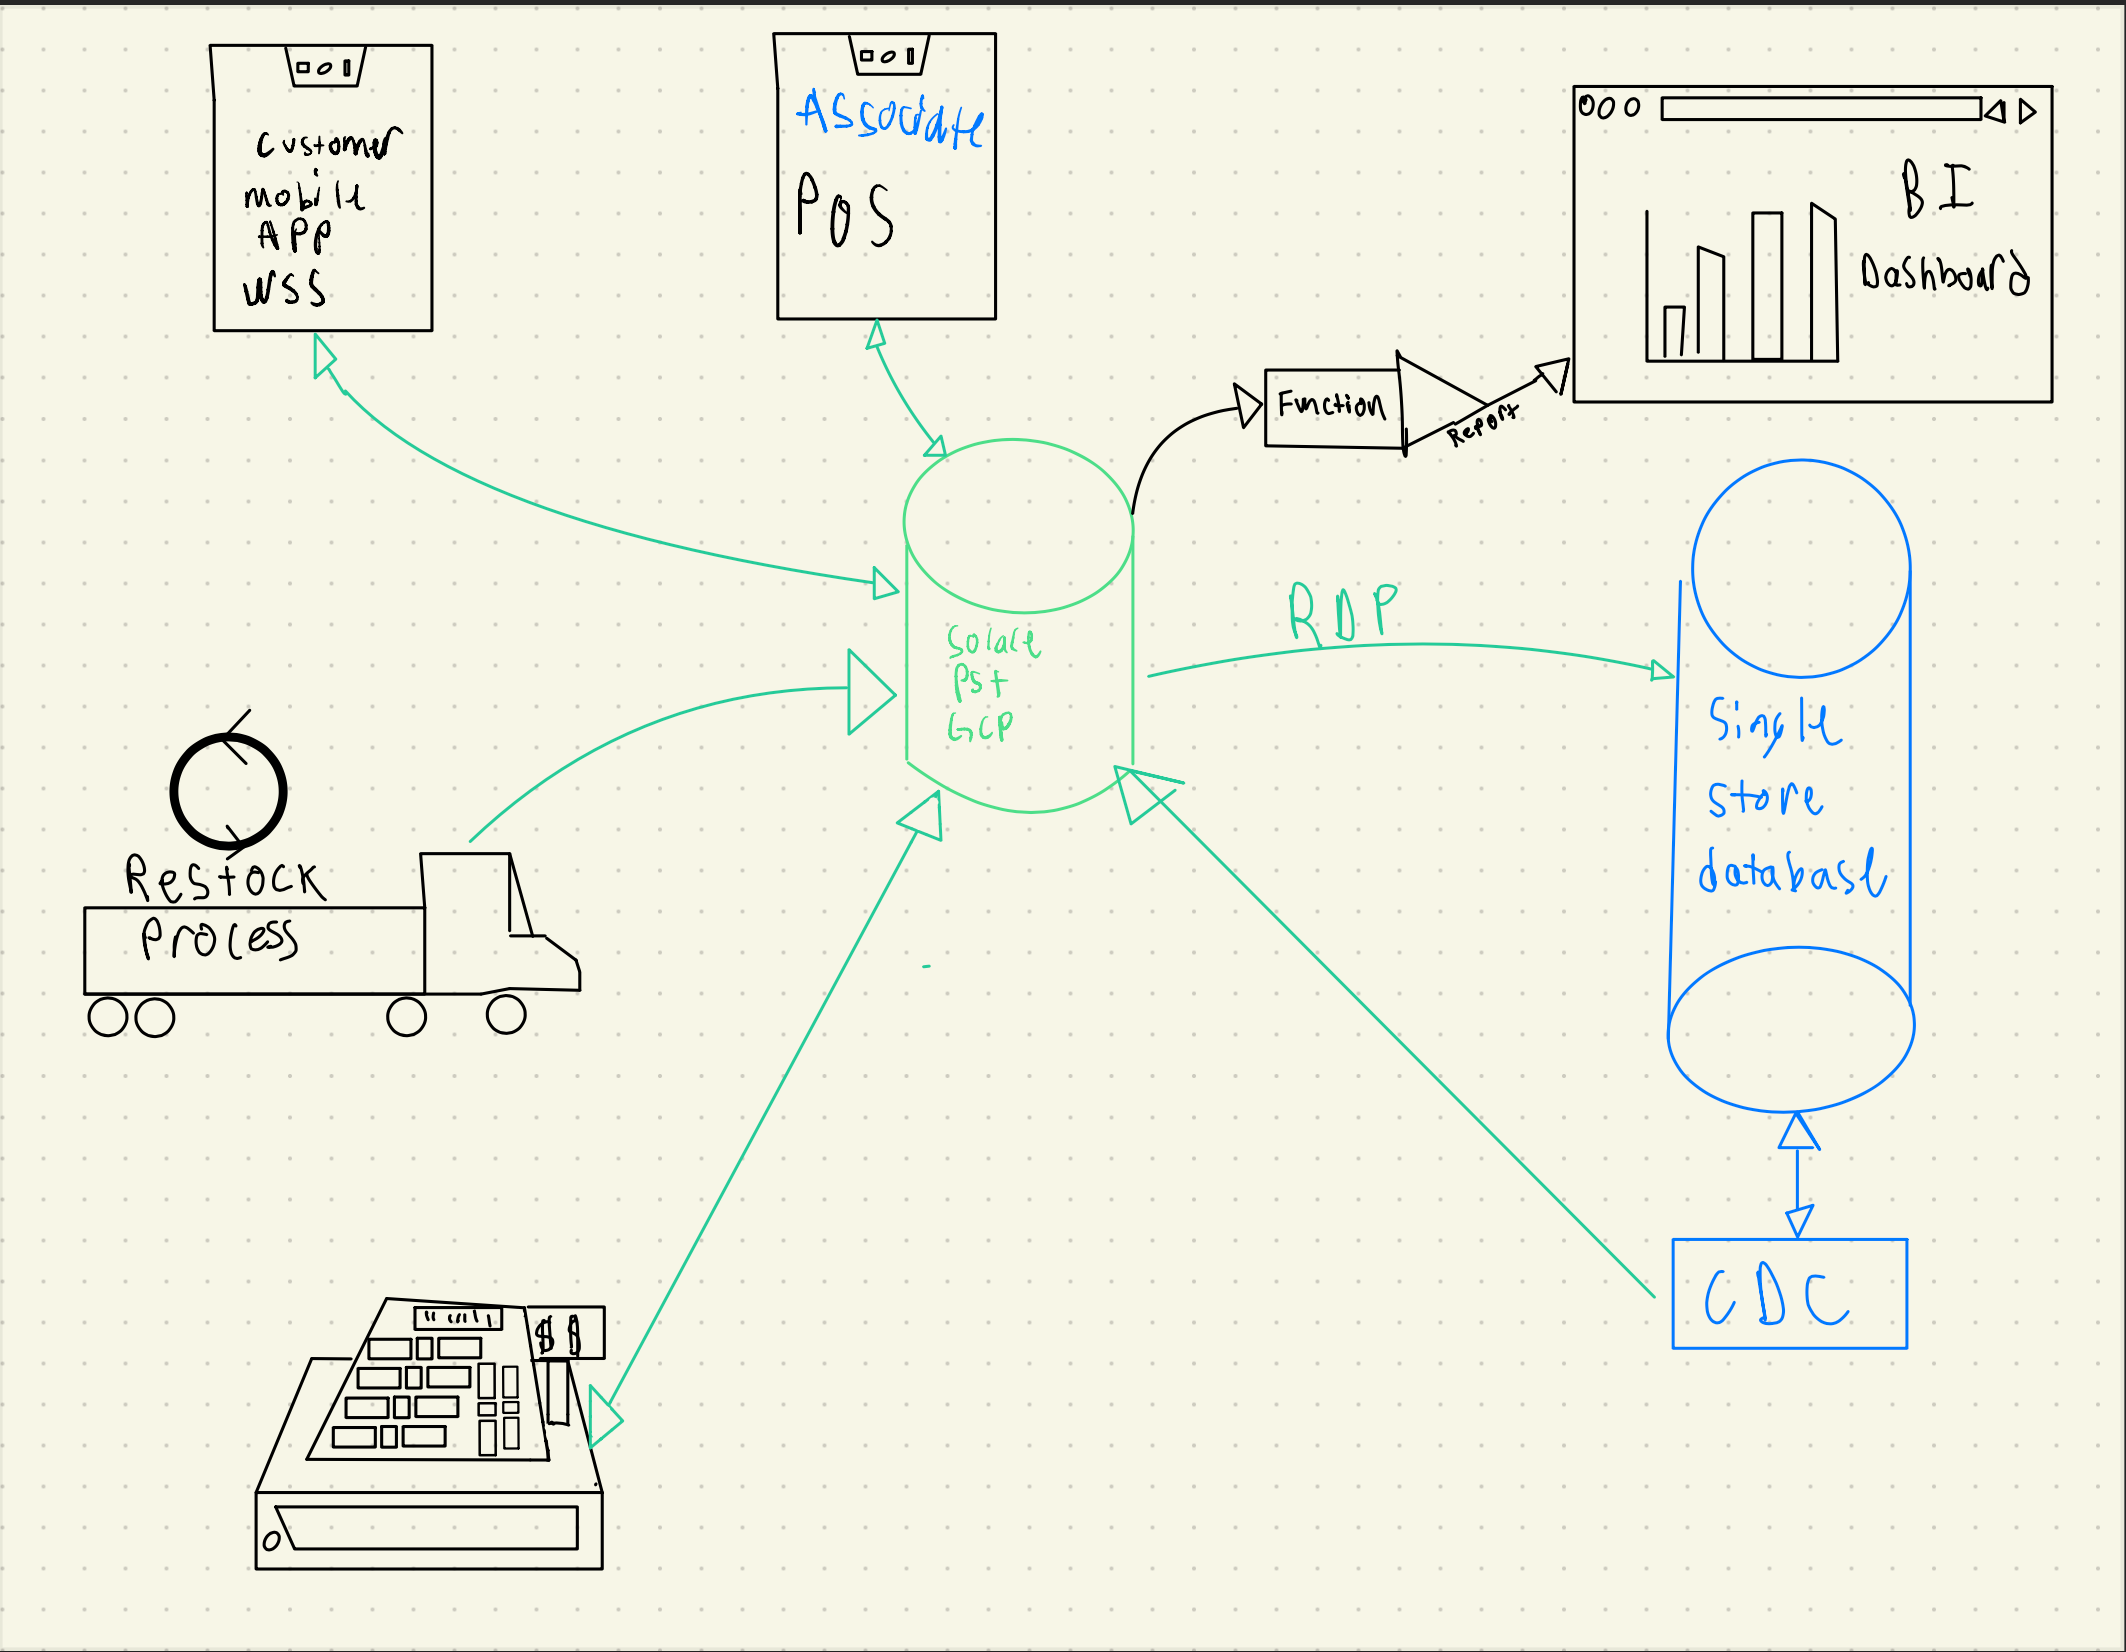 Customer
mobile
APP
WSS
Associate
POS
BI
Dashboard
Function
Report
Solace
PST
GCP
RDP
Single
store
database
Restock
Process
$ $
CDC